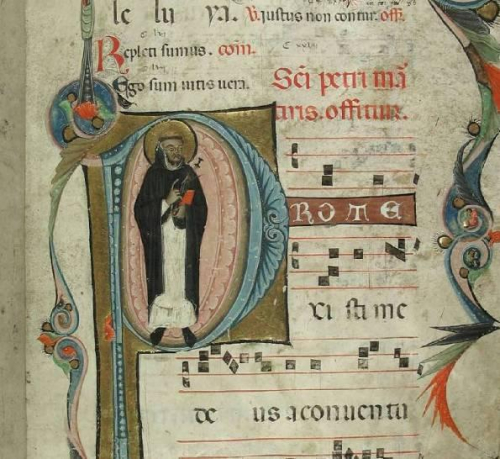 le lu ya. V. Justus non contur. off.
Repleti sumus. com.
Ego sum uitis uera.
Sc̄i petri mā
PROTE
xi sti me
de us a conuentu